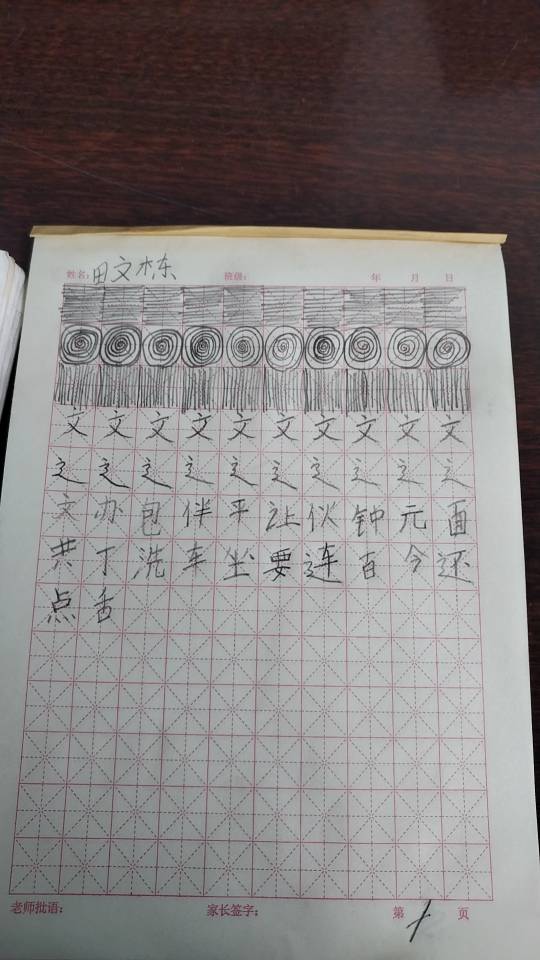 姓名：田文栋 班级： 年 月 日
文文文文文文文文文文
辶辶辶辶辶辶辶辶辶辶
文办包伴平让伙钟元面
共丁洗车坐要连百今还
点舌
老师批语： 家长签字： 第1页